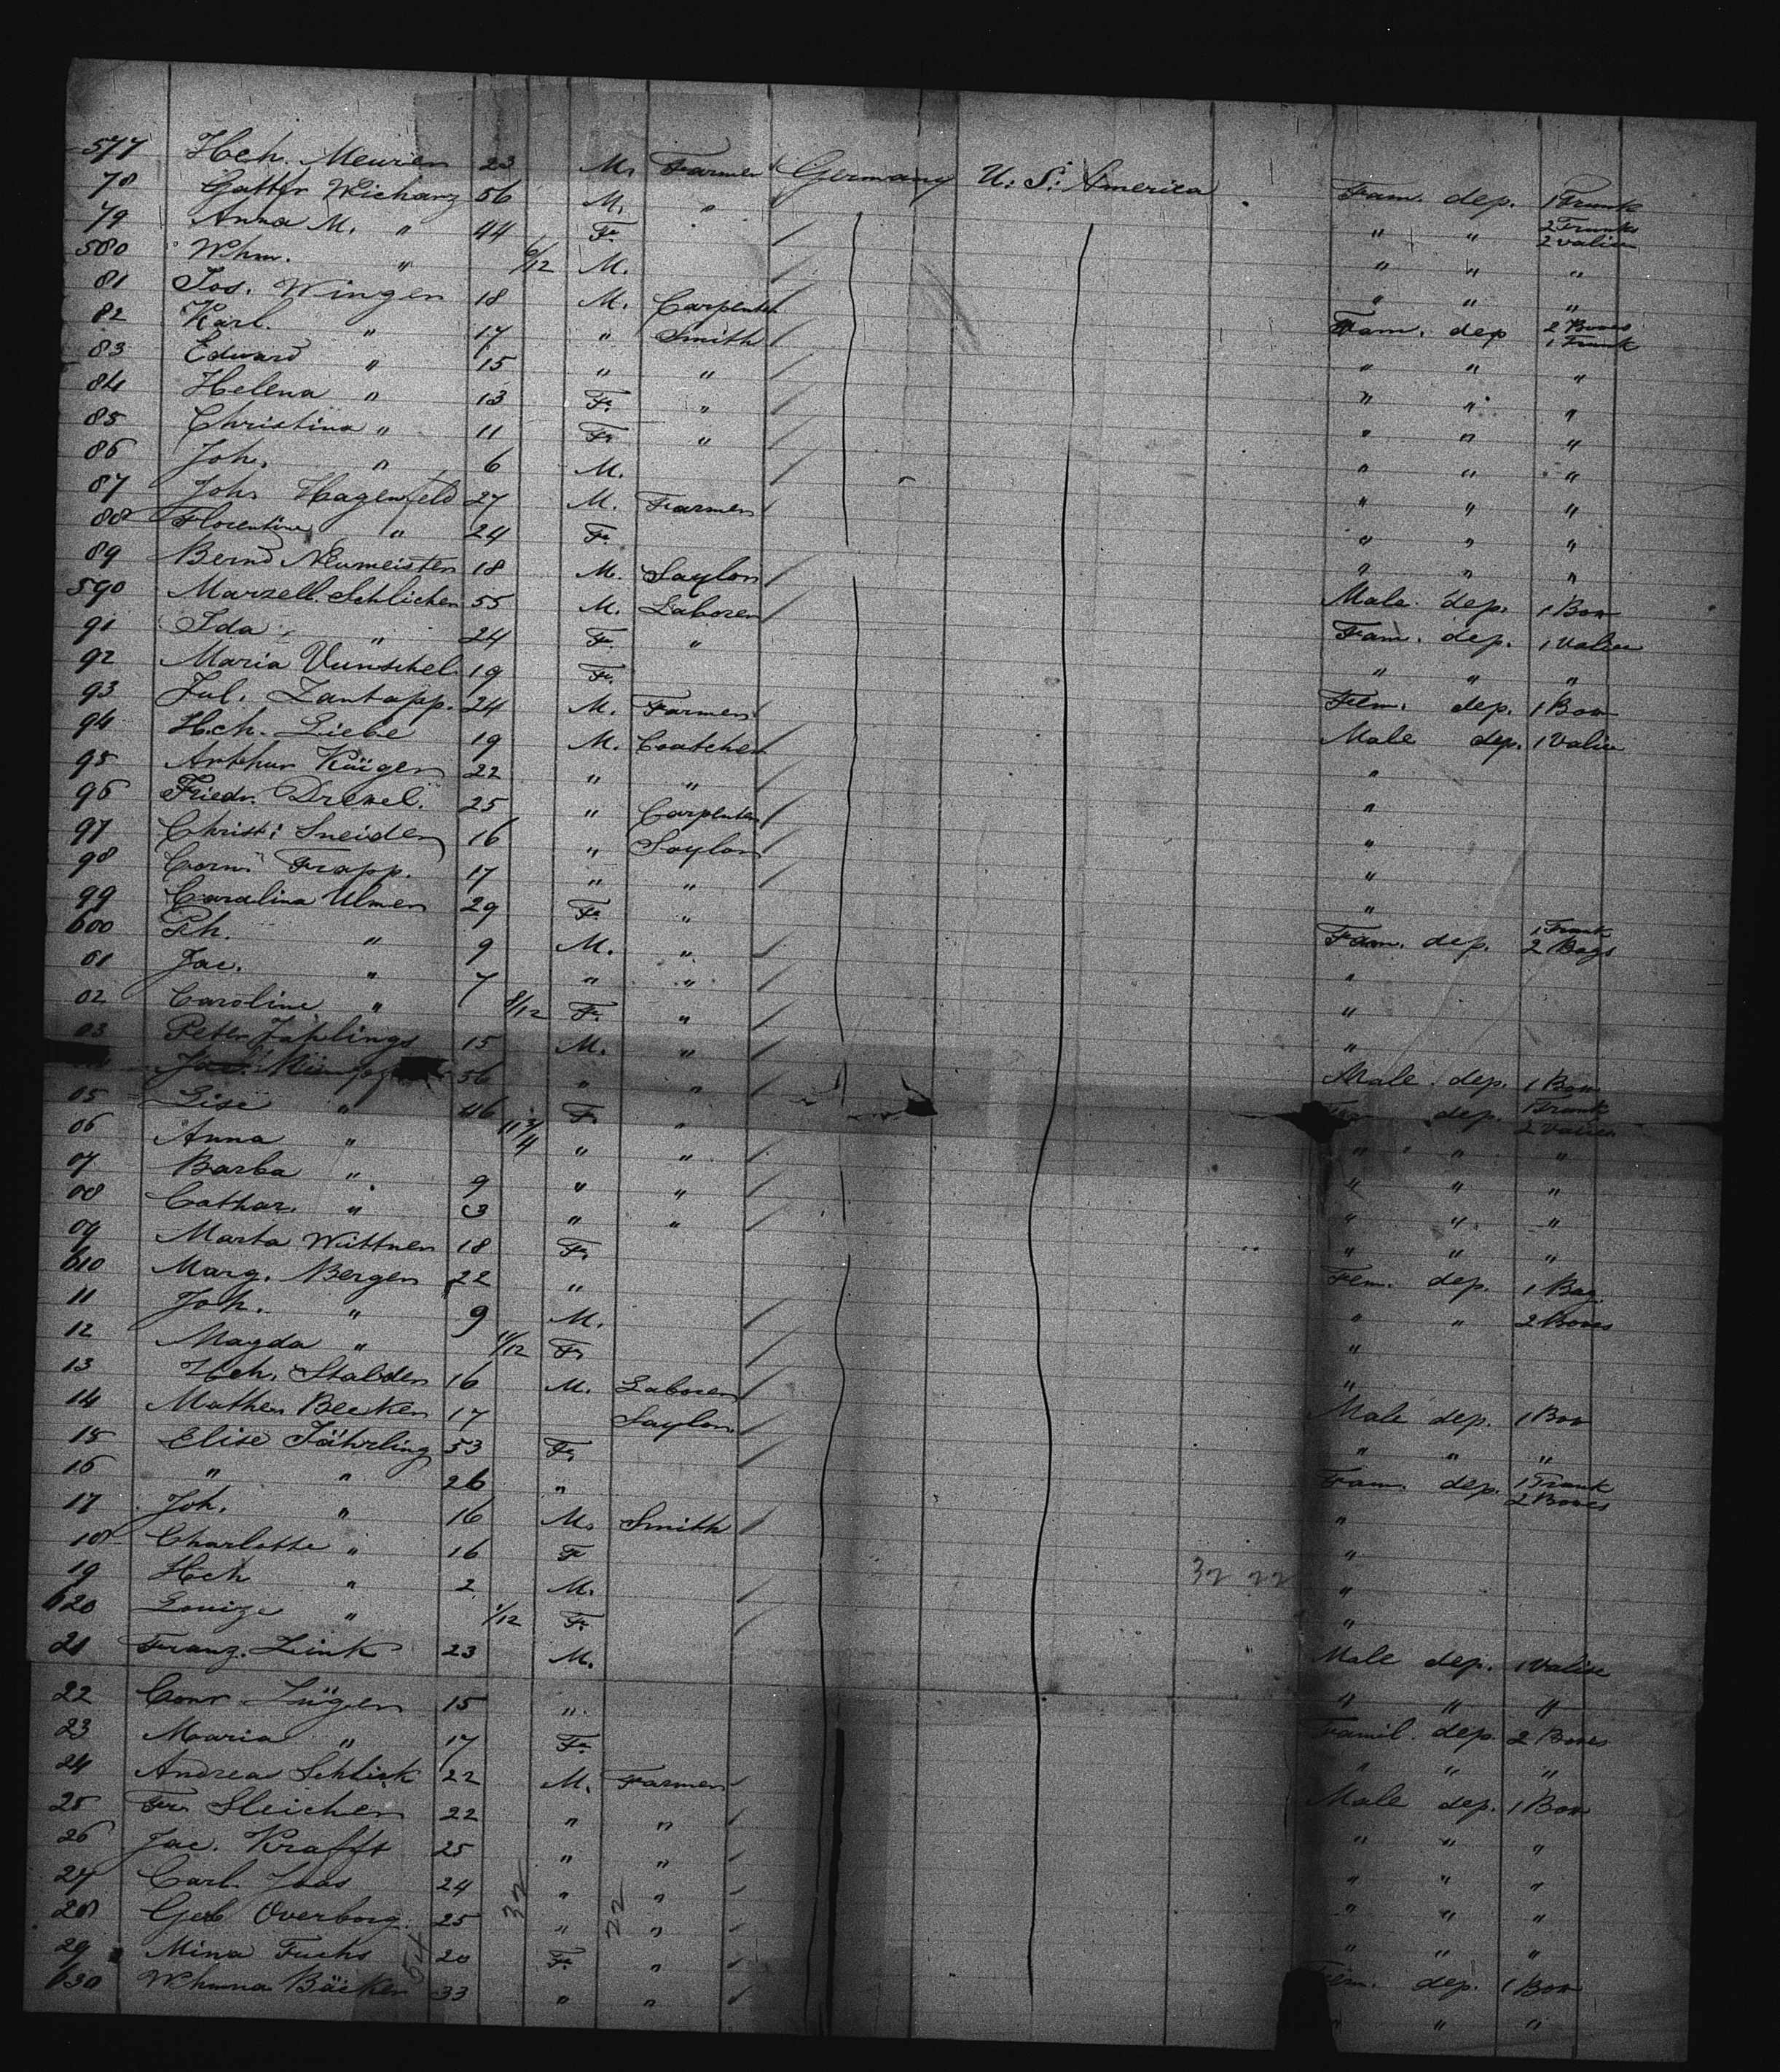 577 Hch. Meurien 23 M. Farmer Germany U. S. America Fam. dep. 1 Trunk
78 Gottfr Wichary 56 M. " " " 2 Trunks 2 Valisen
79 Anna M. " 44 Fe " " "
580 Whm. " 6/12 M. " " "
81 Jos. Wingen 18 M. Carpenter Fam. dep 2 Boxes 1 Trunk
82 Karl. " 17 " Smith " " "
83 Edward " 15 " " " " "
84 Helena " 13 Fe " " " "
85 Christina " 11 Fe " " " "
86 Joh. " 6 M. " " "
87 Johs Hagenfeld 27 M. Farmer " " "
88 Florentine " 24 Fe " " "
89 Bernd Neumeister 18 M. Taylor Male dep. 1 Box
590 Marzell. Schlicher 55 M. Laborer Fam. dep. 1 Valise
91 Ida " 24 Fe " " " "
92 Maria Vunschel 19 Fe Fem. dep. 1 Box
93 Jul. Zantopp. 24 M. Farmer Male dep. 1 Valise
94 Hch. Liebe 19 M. "
95 Arthur 22 " " "
96 Friedr. Drexel. 25 " Carpenter "
97 Christ: Sneider 16 " Taylor "
98 Corn. Trapp. 17 " " "
99 Carolina Ulmer 29 Fe " Fam. dep. 1 Trunk 2 Bags
600 Ph. " 9 M. " "
01 Jac. " 7 " " "
02 Caroline " 8/12 Fe " "
03 Peter Jahlings 15 M. " Male dep. 1 Box
56 " " dep. 1 Trunk 2 Valisen
05 Lise " 46 Fe " " " "
06 Anna " 11 3/4 " " " " "
07 Barba " 9 " " " " "
08 Cathar. " 3 " " " " "
09 Marta Wuttner 18 Fe Fem. dep. 1 Bag.
610 Marg. Bergen 22 " " " 2 Boxes
11 Joh. " 9 M. "
12 Magda " 11/12 Fe "
13 Hch. Stalder 16 M. Laborer Male dep. 1 Box
14 Mather Becker 17 Taylor " " "
15 Elise Jährling 53 Fe Fam. dep. 1 Trunk 2 Boxes
16 " " 26 " "
17 Joh. " 16 M. Smith "
18 Charlotte " 16 F "
19 Hch " 2 M. "
620 Louize " 1/12 Fe
21 Franz. Link 23 M. Male dep. 1 Valise
22 Conr 15 " " " "
23 Maaria " 17 Fe Famil. dep. 2 Boxes
24 Andrea Schlick 22 M. Farmer " " "
25 Fr. Sleicher 22 " " Male dep. 1 Box
26 Jac. Krafft 25 " " " " "
27 Carl. Joas 24 " " " " "
28 Gerb Overborg. 25 " " " " "
29 Mina Fuchs 20 Fe " " " "
630 Whmna Bäcker 33 " " Fem. dep. 1 Box
" " "
32 22
32
22
54